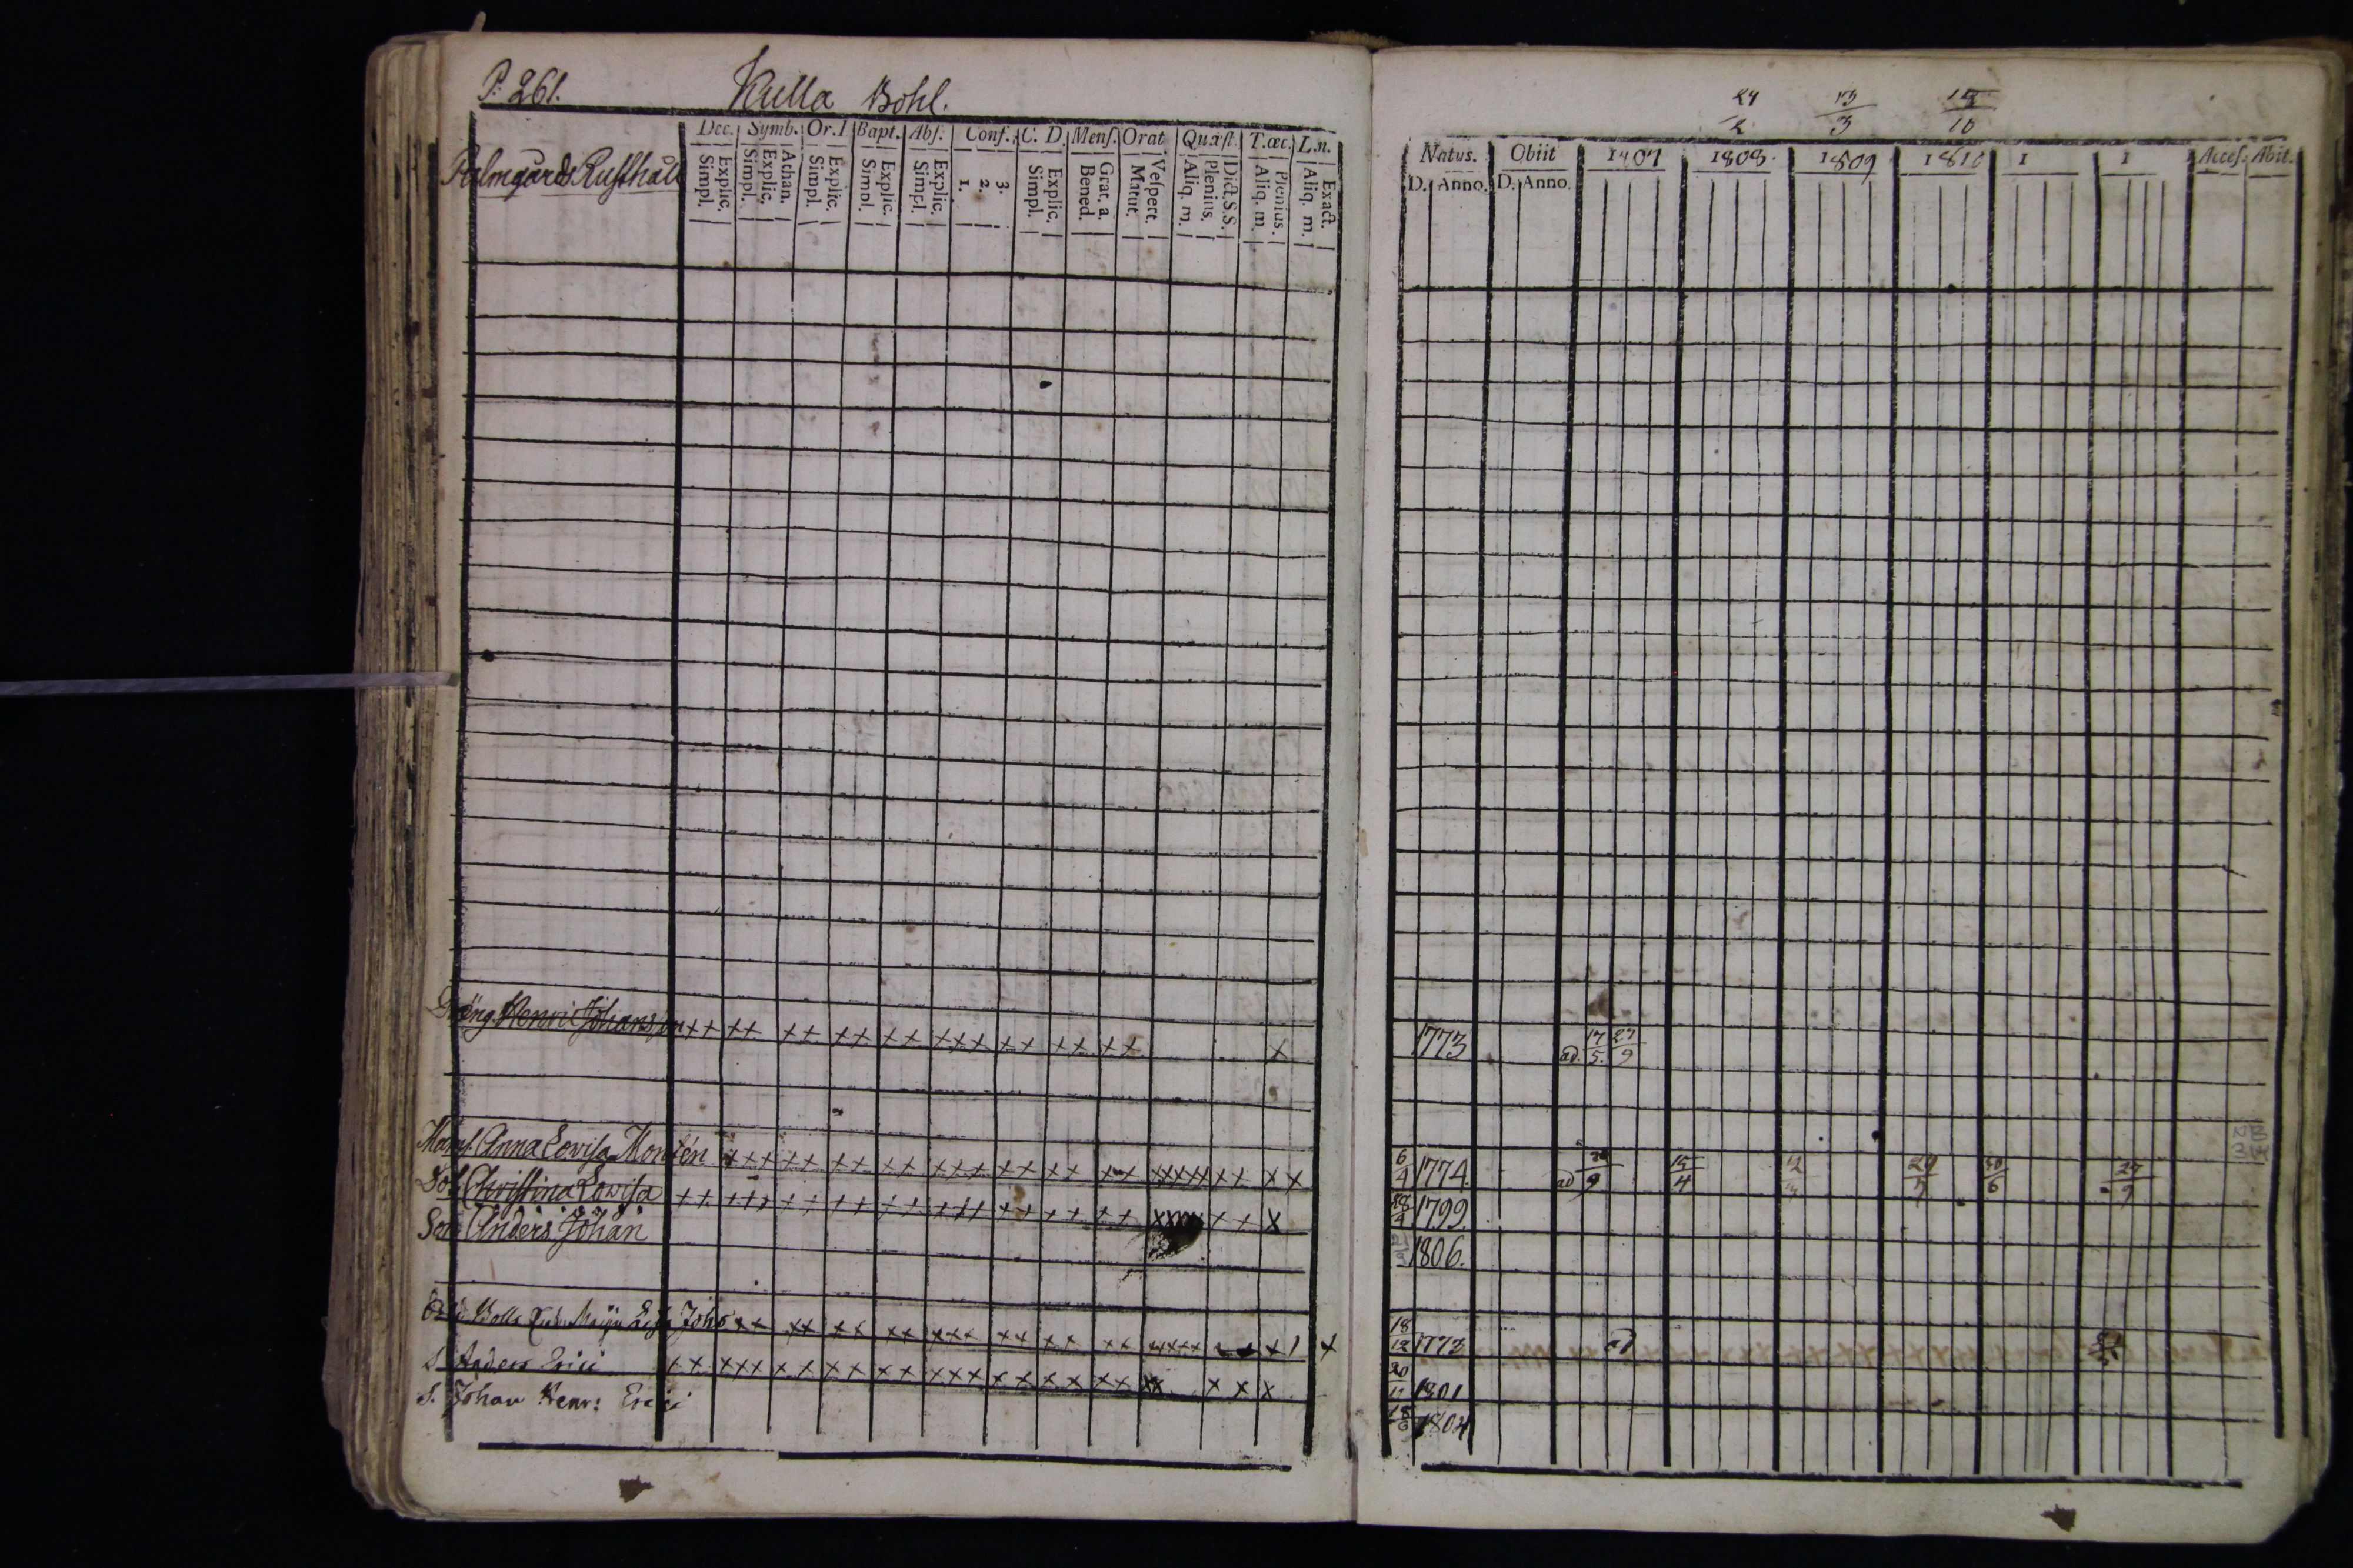 P. 261. Kulla Bohl.
Dec. Symb. Or. I Bapt. Abs. Conf. C. D. Mens. Orat Quæst. T.œc. L.n.
Simpl. Explic. Simpl. Explic. Athan. Simpl. Explic. Simpl. Explic. Simpl. Explic. 1. 2. 3. Simpl. Explic. Bened. Grat. a. Matut. Vespert. Aliq. m. Plenius. Dict. S. S. Aliq. m. Plenius. Aliq. m. Exact.
Rusthåll
Dräng. Henric Johansson
Mams. Anna Lovisa Montén
Dot. Christina Lovisa
Son Anders Johan
S. Anders Erici
S. Johan Henr: Erici
24/2 13/3 15/10
Natus. Obiit 1807 1808. 1809 1810 1 1 Acces. Abit.
D. Anno. D. Anno.
1773 ad. 17/5. 27/9
6/4 1774. ad 20/9 15/4 29/7 30/6 27/9
1799
1806.
18/12 1773 ad
20/11 1801
18/6 1804